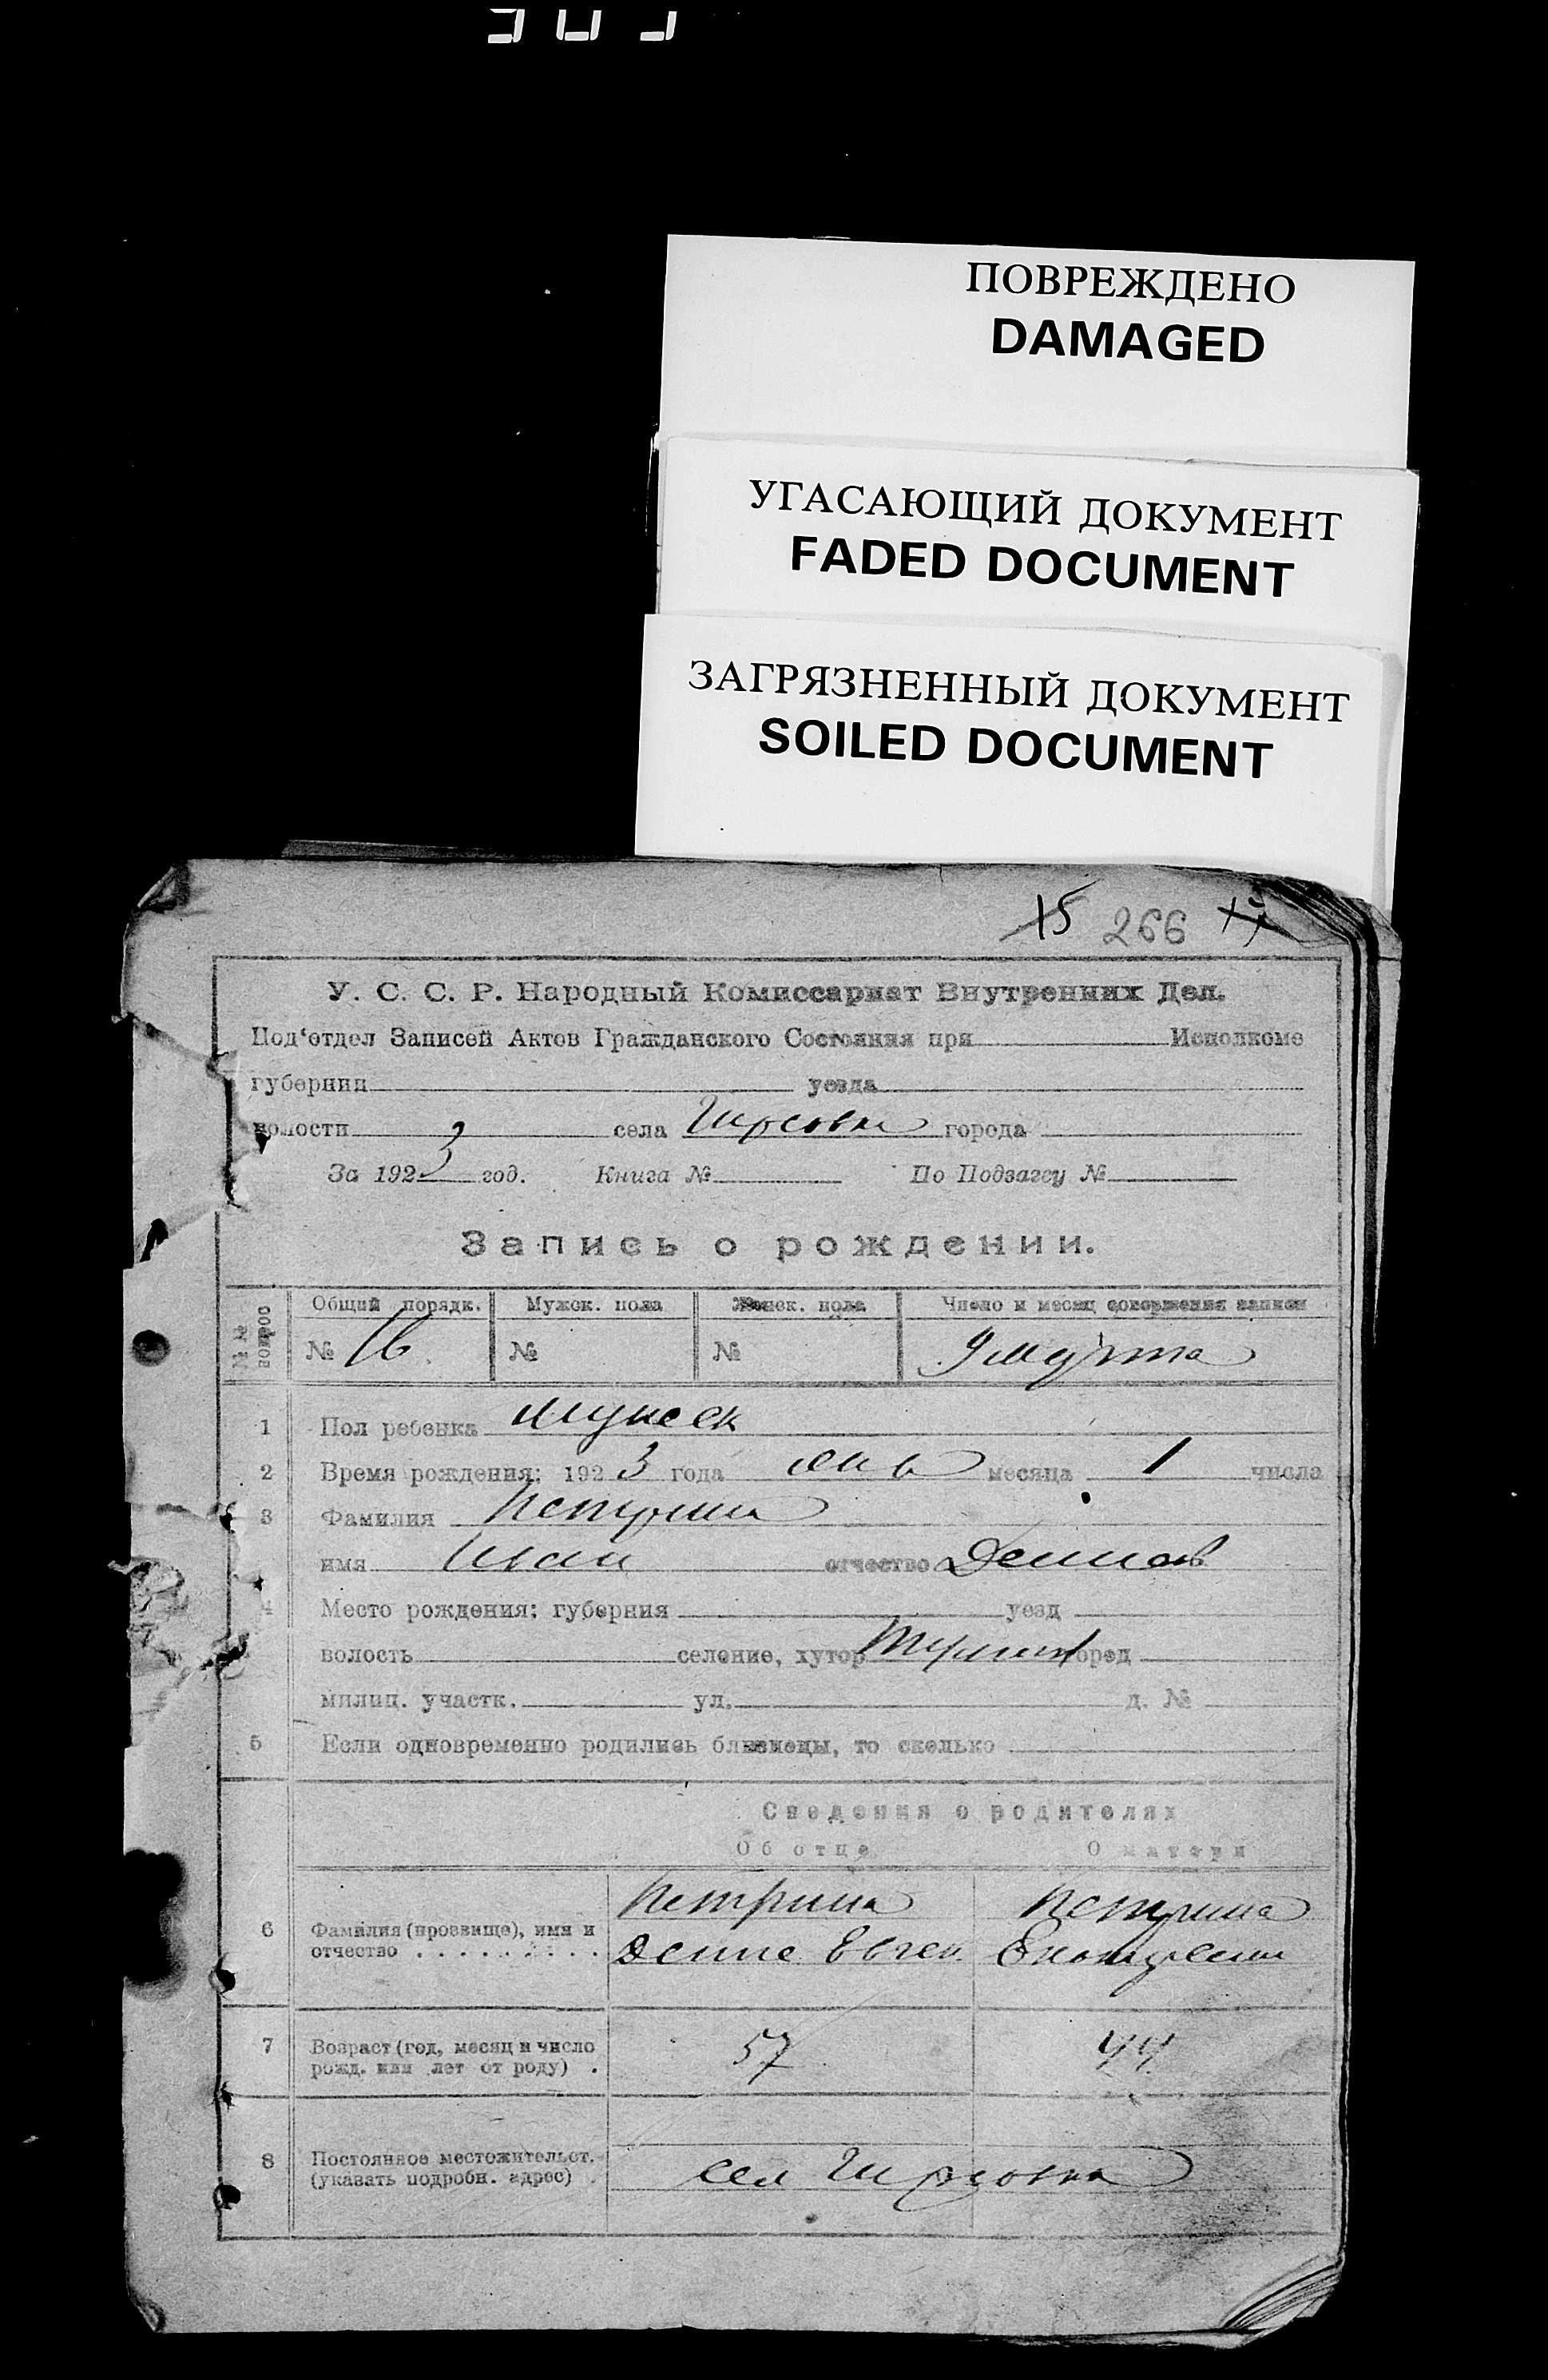 ПОВРЕЖДЕНО
DAMAGED
УГАСАЮЩИЙ ДОКУМЕНТ
FADED DOCUMENT
ЗАГРЯЗНЕННЫЙ ДОКУМЕНТ
SOILED DOCUMENT
15 266
У. С. С. Р. Народный Комиссариат Внутренних Дел.
Под‘отдел Записей Актов Гражданского Состояния при Исполкоме
губернии уезда
волости села города
За 1923 год. Книга № По Подзагсу №
Запись о рождении.
№№ вопрос
Общий порядк. Мужск. пола Женск. пола Число и месяц совершения записи
№ 16 № № 9 марта
1 Пол ребенка мужск
2 Время рождения: 1923 года янв месяца 1 числа
3 Фамилия Петрина
имя Иван отчество Денисов
4 Место рождения: губерния уезд
волость селение, хутор город
милиц. участк. ул. д. №
5 Если одновременно родились близнецы, то сколько
Сведения о родителях
Об отце О матери
6 Фамилия (прозвище), имя и отчество . . . . . . . . .
Петрина Петрина
Денис Евген.
7 Возраст (год, месяц и число рожд. или лет от роду) .
57 44
8 Постоянное местожительст. (указать подробн. адрес) .
сел